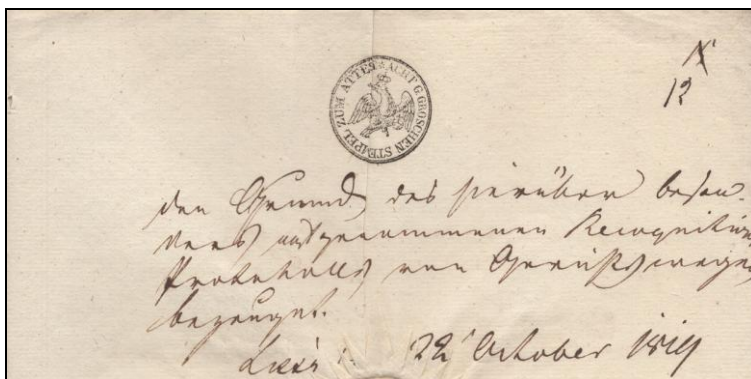 12
STEMPEL ZUM ATTEST ACHT G. GROSCHEN
den Grund des hierüber beson-
ders aufgenommenen Recognitions
Protokolls von Gerichtswegen
bezeuget.
22 October 1819